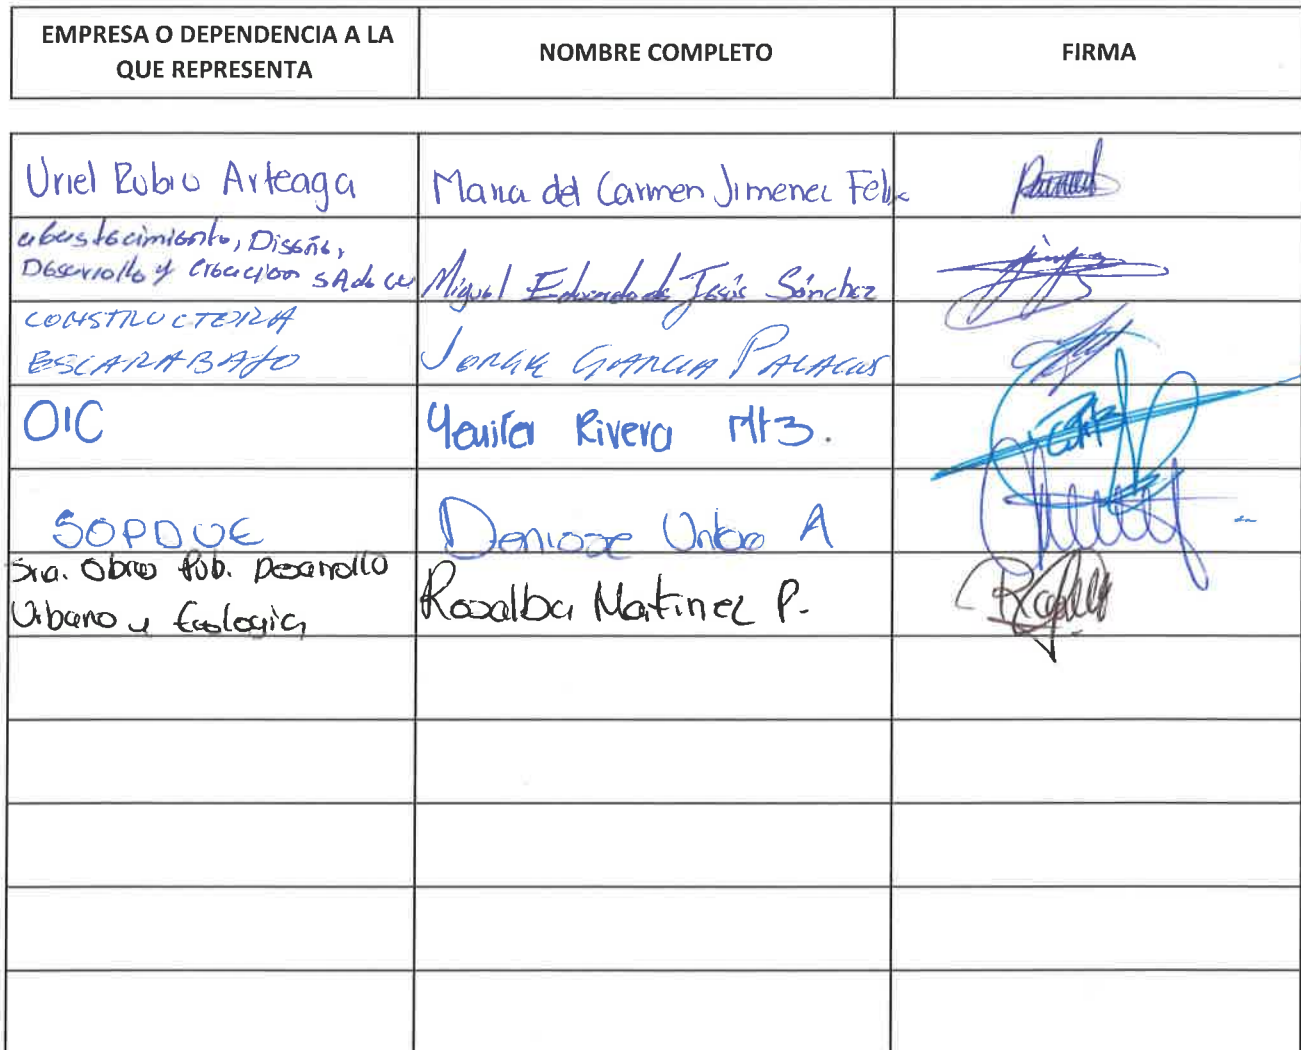 EMPRESA O DEPENDENCIA A LA
QUE REPRESENTA
NOMBRE COMPLETO
FIRMA
Uriel Rubio Arteaga
Maria del Carmen Jimenez Felix
abastecimiento, Diseño,
Desarrollo y Creacion SA de CV
Miguel Eduardo de Jesús Sánchez
CONSTRUCTORA
ESCARABAJO
JORGE GARCIA PALACIOS
OIC
Rivera Mtz.
SOPDUE
Denisse A
Sria. Obras Pub. Desarrollo
Urbano y Ecologia
Rosalba Martinez P.